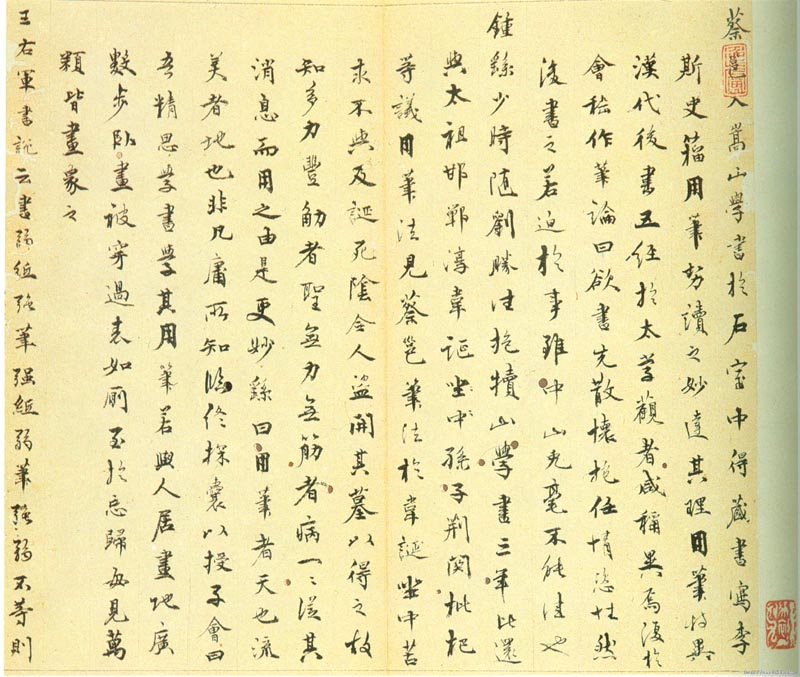 蔡邕入嵩山學書於石室中得藏書寫李
斯史籀用筆勢讀之妙達其理用筆特異
漢代後書五經於太學觀者咸稱異焉復於
會稽作筆論曰欲書先散懷抱任情恣性然
後書之若迫於事雖中山兔毫不能佳也
鍾繇少時隨劉勝往抱犢山學書三年比還
與太祖邯鄲淳韋誕坐中孫子荆關枇杷
等議用筆法見蔡邕筆法於韋誕坐中苦
求不與及誕死陰令人盜開其墓以得之故
知多力豐觔者聖無力無筋者病一一從其
消息而用之由是更妙繇曰用筆者天也流
美者地也非凡庸所知臨終探囊以授子會曰
吾精思學書學其用筆若與人居畫地廣
數步臥畫被穿過表如廁至於忘歸每見萬
類皆畫象之
王右軍書說云書弱紙强筆强紙弱筆强弱不等則